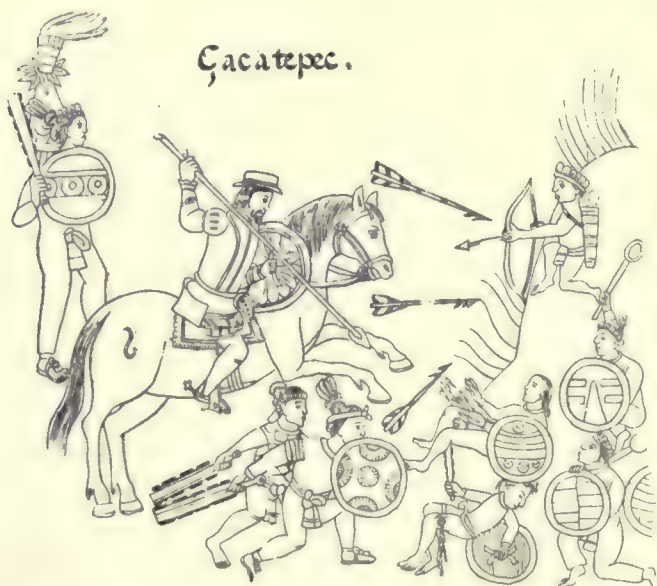 Çacatepec.